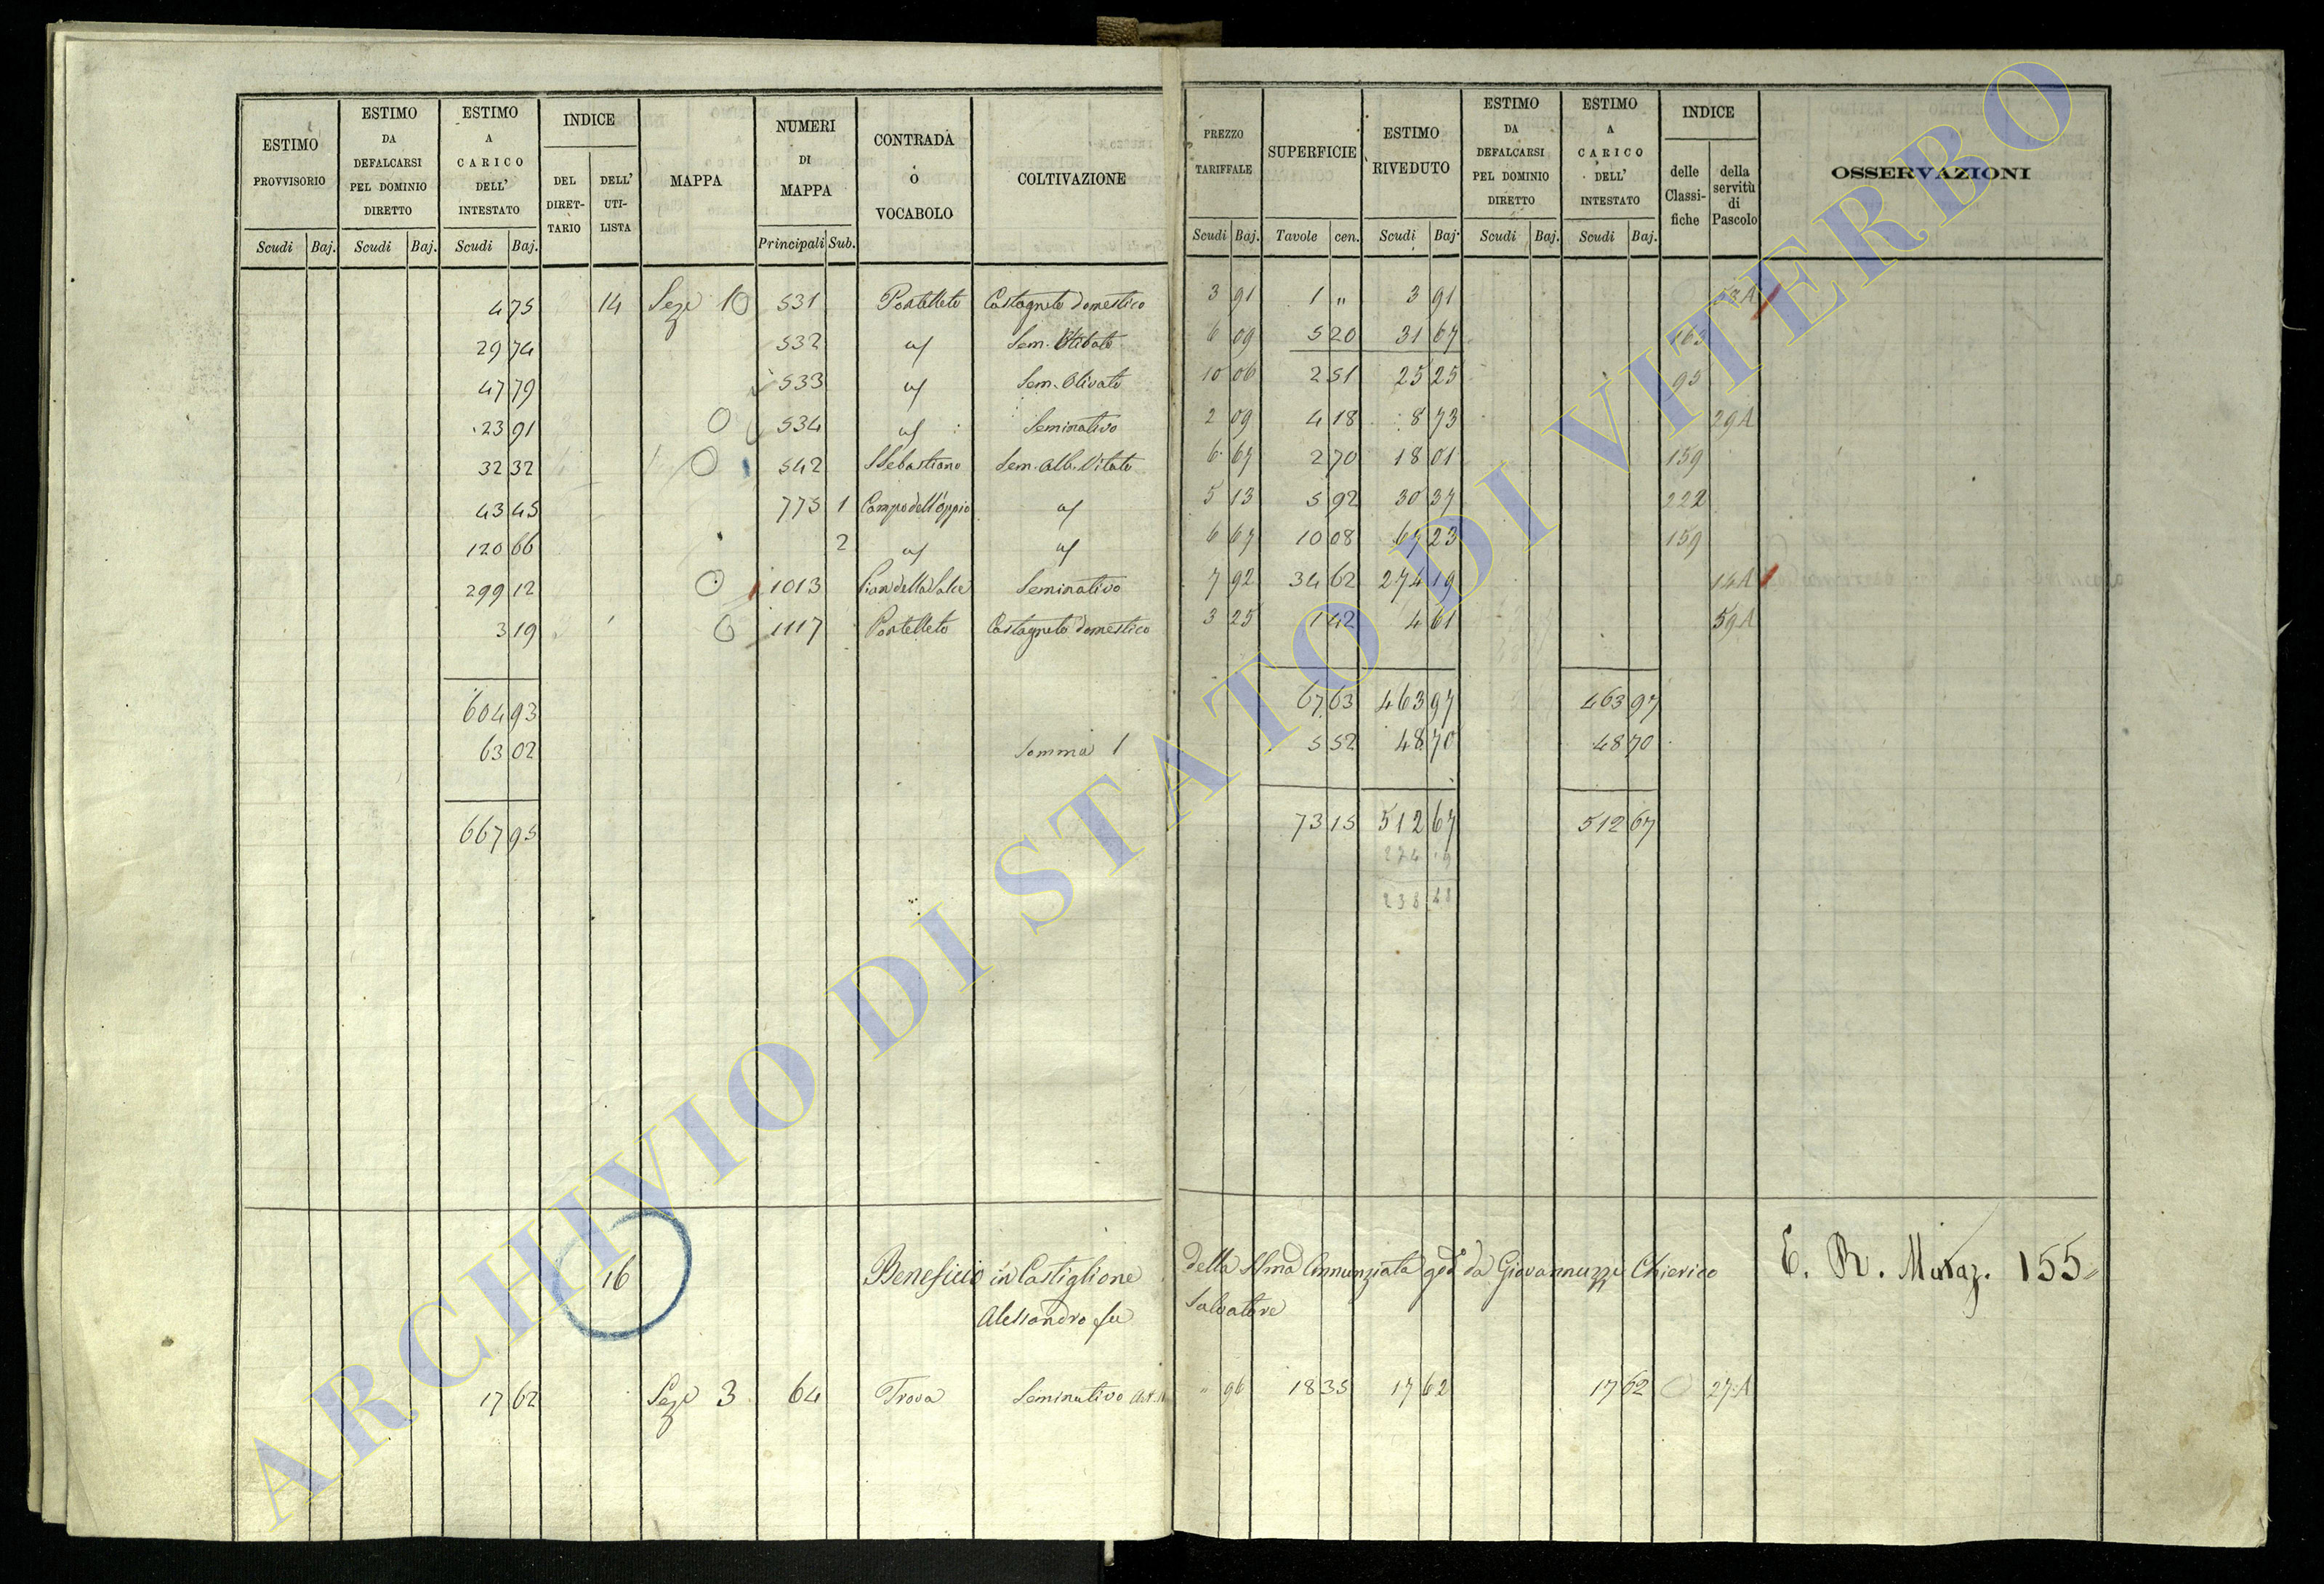 ESTIMO PROVVISORIO Scudi Baj.
ESTIMO DA DEFALCARSI PEL DOMINIO DIRETTO Scudi Baj.
ESTIMO A CARICO DELL' INTESTATO Scudi Baj.
INDICE DEL DIRET- TARIO DELL' UTI- LISTA
MAPPA
NUMERI DI MAPPA Principali Sub.
CONTRADA O VOCABOLO
COLTIVAZIONE
PREZZO TARIFFALE Scudi Baj.
SUPERFICIE Tavole cen.
ESTIMO RIVEDUTO Scudi Baj.
ESTIMO DA DEFALCARSI PEL DOMINIO DIRETTO Scudi Baj.
ESTIMO A CARICO DELL' INTESTATO Scudi Baj.
INDICE delle Classi- fiche della servitù di Pascolo
OSSERVAZIONI
4 75 14 Sez 10 531 Portelleto Castagneto domestico 3 91 1 " 3 91 53 A
29 74 532 Sem. 6 09 5 20 31 67 163
47 79 533 Sem. Olivato 10 06 2 51 25 25 95
23 91 534 Seminativo 2 09 4 18 8 73 29 A
32 32 542 S Sebastiano Sem. Alb. Vitato 6 67 2 70 18 01 159
43 45 775 1 Campo dell'Oppio 5 13 5 92 30 37 222
120 66 2 6 67 10 08 67 23 159
299 12 1013 Pian della Salce Seminativo 7 92 34 62 274 19 14 A
3 19 1117 Portelleto Castagneto domestico 3 25 1 42 4 61 59 A
604 93 67 63 463 97 463 97
63 02 Somma 1 5 52 48 70 48 70
667 95 73 15 512 67 512 67
274 19
238 48
16 Beneficio in Castiglione della SSma Annunziata god da Giovannuzzi Chierico E. R. Maraz. 155
Alessandro fu Salvatore
17 62 Sez 3 64 Trova Seminativo " 96 18 35 17 62 17 62 27 A
ARCHIVIO DI STATO DI VITERBO